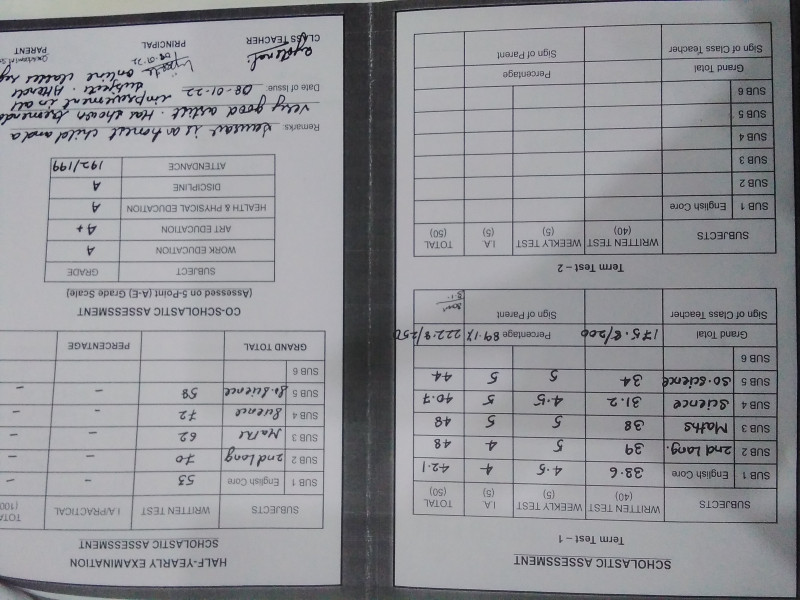 SCHOLASTIC ASSESSMENT
Term Test – 1
SUBJECTS WRITTEN TEST (40) WEEKLY TEST (5) I.A (5) TOTAL (50)
SUB 1 English Core 33.6 4.5 4 42.1
SUB 2 2nd Lang. 39 5 4 48
SUB 3 Maths 38 5 5 48
SUB 4 Science 31.2 4.5 5 40.7
SUB 5 So.science 34 5 5 44
SUB 6
Grand Total 175.8/200 Percentage 89.1% 222.8/250
Sign of Class Teacher Sign of Parent
Term Test – 2
SUBJECTS WRITTEN TEST (40) WEEKLY TEST (5) I.A (5) TOTAL (50)
SUB 1 English Core
SUB 2
SUB 3
SUB 4
SUB 5
SUB 6
Grand Total Percentage
Sign of Class Teacher Sign of Parent
HALF-YEARLY EXAMINATION
SCHOLASTIC ASSESSMENT
SUBJECTS WRITTEN TEST I.A/PRACTICAL TOTA (100)
SUB 1 English Core 55 – –
SUB 2 2nd Lang 70 – –
SUB 3 Maths 62 – –
SUB 4 Science 72 – –
SUB 5 So.science 58 – –
SUB 6
GRAND TOTAL PERCENTAGE
CO-SCHOLASTIC ASSESSMENT
(Assessed on 5-Point (A-E) Grade Scale)
SUBJECT GRADE
WORK EDUCATION A
ART EDUCATION A+
HEALTH & PHYSICAL EDUCATION A
DISCIPLINE A
ATTENDANCE 192/199
Remarks: is an honest child and a
very good artist. Has shown tremendo
improvement in all
Date of Issue: 08-01-22 subjects. Attend
online classes reg
08-01-22
CLASS TEACHER PRINCIPAL PARENT